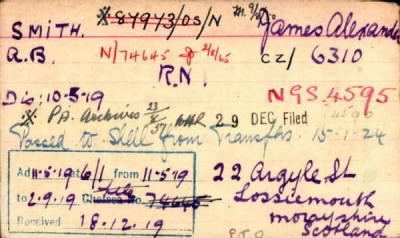 SMITH. ※ 84973/DS/N James Alexander
A.B. N/74645 2/8/65 CZ/ 6310
R.N.
Dis: 10-5-19 NGS. 4595
※ P.A. Archives 29 DEC Filed
Passed to Shell from Transfhs. 15-1-24
Ad 11-5-19 at 6/1 from 11-5-19 22 Argyle St
to 2.9.19 Chelsea No. 74645 Lossiemouth
Morayshire
Received 18.12.19 Scotland
P.T.O